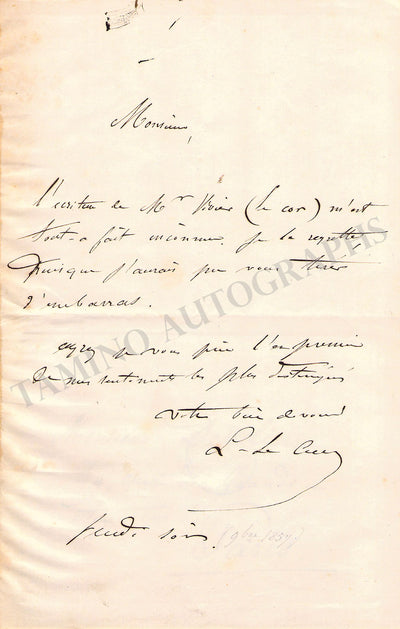 Monsieur,
l'écriture de Mr Vivier (le cor) m'est
tout-a-fait inconnue. Je le regrette
Puisque j'aurais pu vous tirer
d'embarras.
agréez je vous prie l'expression
de mes sentiments les plus distingués
votre bien devoué
L. Le
jeudi soir. (9bre 1857)
TAMINO AUTOGRAPHS